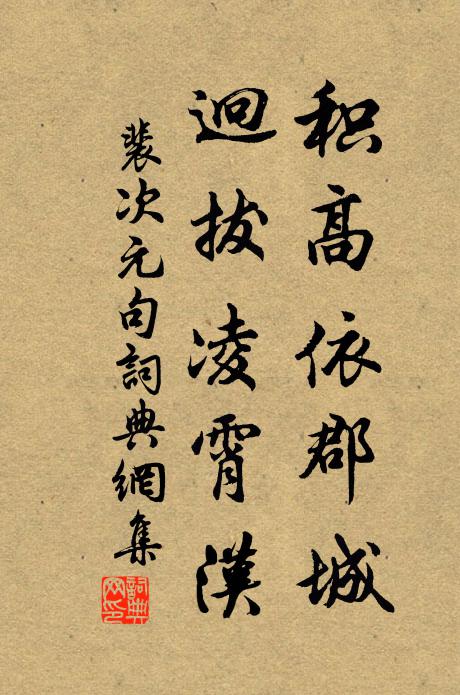 积高依郡城
迥拔凌霄漢
裴次元句詞典網集
詞典
网印